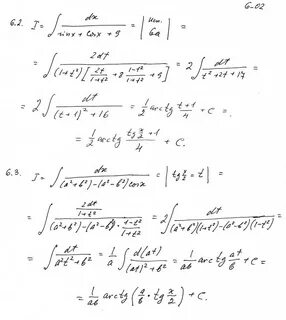 6-02
6.2. I = ∫ dx/(sinx + cosx + 9) = | 6a | =
= ∫ 2dt/((1+t²)[2t/(1+t²) + 8 (1-t²)/(1+t²) + 9]) = 2∫ dt/(t²+2t+17) =
= 2∫ dt/((t+1)²+16) = 1/2 arctg (t+1)/4 + C =
= 1/2 arctg (tg x/2 + 1)/4 + C.
6.3. I = ∫ dx/((a²+b²)-(a²-b²)cosx) = | tg x/2 = t | =
= ∫ (2dt/(1+t²))/((a²+b²)-(a²-b²)·(1-t²)/(1+t²)) = 2∫ dt/((a²+b²)(1+t²)-(a²-b²)(1-t²)) =
= ∫ dt/(a²t²+b²) = 1/a ∫ d(at)/((at)²+b²) = 1/ab arctg at/b + C =
= 1/ab arctg (a/b · tg x/2) + C.